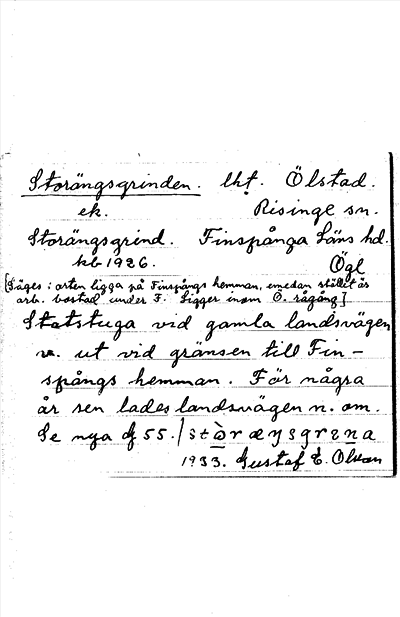 Storängsgrinden. lht. Ölstad.
ek. Risinge sn.
Storängsgrind. Finspånga Läns hd.
kb 1926. Ögl
[Säges i orten ligga på Finspångs hemman, emedan stället är
arb. bostad under F. Ligger inom Ö. rågång]
Statstuga vid gamla landsvägen
v. ut vid gränsen till Fin-
spångs hemman. För några
år sen lades landsvägen n. om.
Se nya 55. / stòræŋsgrena
1933. Gustaf E. Olsson